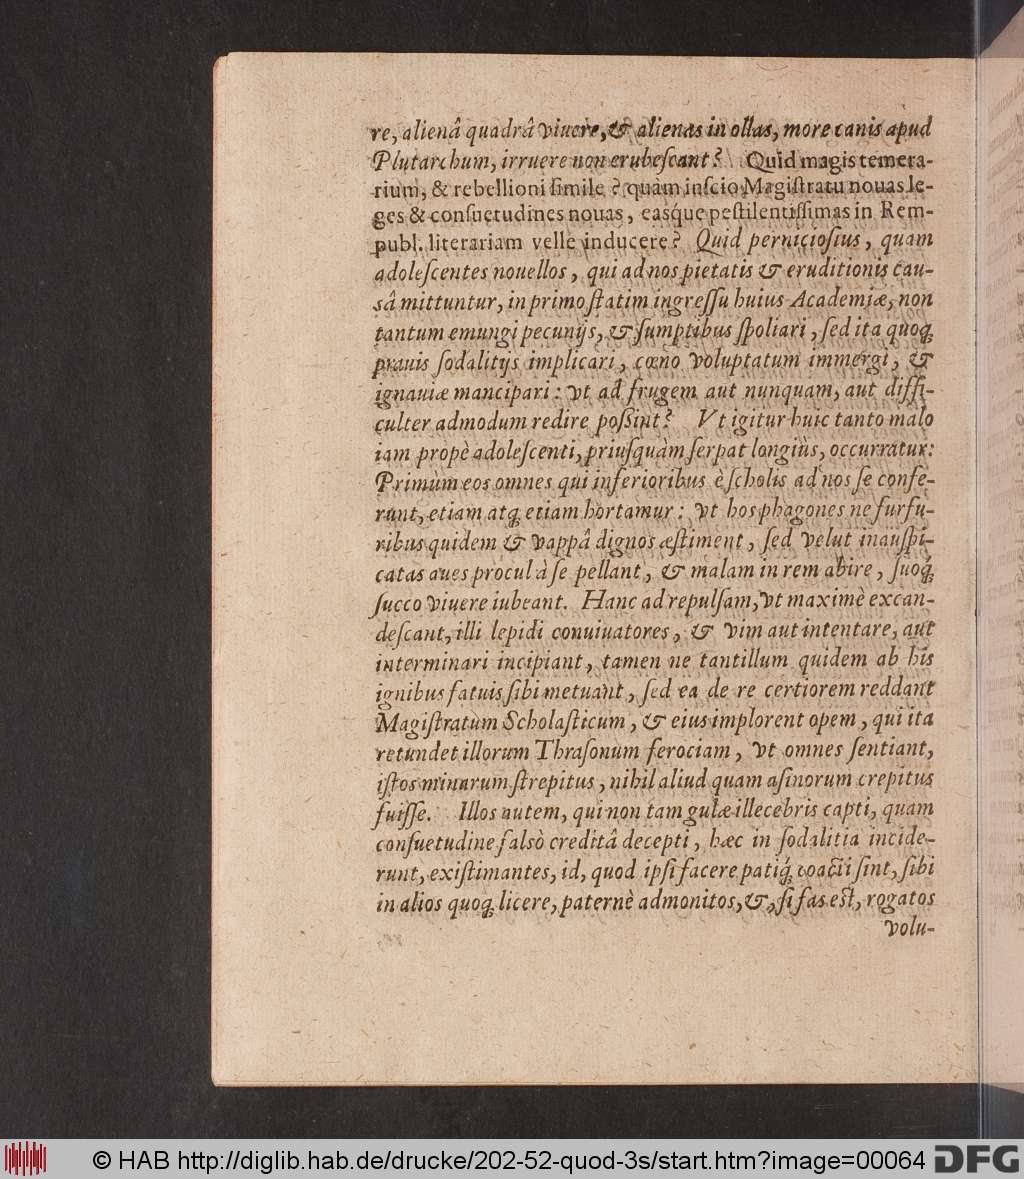 re, alienâ quadrâ viuere, & alienas in ollas, more canis apud
Plutarchum, irruere non erubeſcant? Quid magis temera-
rium, & rebellioni ſimile? quàm inſcio Magiſtratu nouas le-
ges & conſuetudines nouas, easq́ue peſtilentiſſimas in Rem-
publ. literariam velle inducere? Quid pernicioſius, quam
adoleſcentes nouellos, qui ad nos pietatis & eruditionis cau-
sâ mittuntur, in primo ſtatim ingreſſu huius Academiæ, non
tantum emungi pecunijs, & ſumptibus ſpoliari, ſed ita quoq́;
prauis ſodalitijs implicari, cœno voluptatum immergi, &
ignauiæ mancipari: vt ad frugem aut nunquam, aut diffi-
culter admodum redire poßint? Vt igitur huic tanto malo
iam propè adoleſcenti, priuſquàm ſerpat longiùs, occurratur:
Primùm eos omnes qui inferioribus è ſcholis ad nos ſe confe-
runt, etiam atq́; etiam hortamur: vt hos phagones ne furfu-
ribus quidem & vappâ dignos æſtiment, ſed velut inauſpi-
catas aues procul à ſe pellant, & malam in rem abire, ſuoq́;
ſucco viuere iubeant. Hanc ad repulſam, vt maximè excan-
deſcant, illi lepidi conuiuatores, & vim aut intentare, aut
interminari incipiant, tamen ne tantillum quidem ab his
ignibus fatuis ſibi metuant, ſed ea de re certiorem reddant
Magiſtratum Scholaſticum, & eius implorent opem, qui ita
retundet illorum Thraſonum ferociam, vt omnes ſentiant,
iſtos minarum ſtrepitus, nihil aliud quam aſinorum crepitus
fuiſſe. Illos autem, qui non tam gulæ illecebris capti, quam
conſuetudine falsò creditâ decepti, hæc in ſodalitia incide-
runt, exiſtimantes, id, quod ipſi facere patiq́; coacti ſint, ſibi
in alios quoq́; licere, paternè admonitos, &, ſi fas eſt, rogatos
volu-
© HAB http://diglib.hab.de/drucke/202-52-quod-3s/start.htm?image=00064
DFG